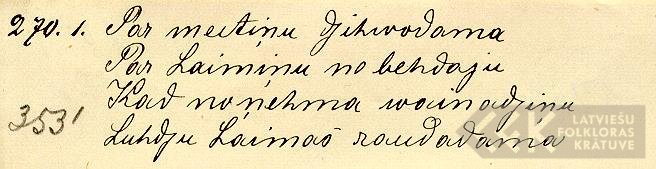 270. 1. Par meitinu dzihwodama
Par Laiminu no behdaju
Kad no nehma wainadzinu
3531
Luhdzu Laimas raudadama
LATVIEŠU
FOLKLORAS
KRĀTUVE